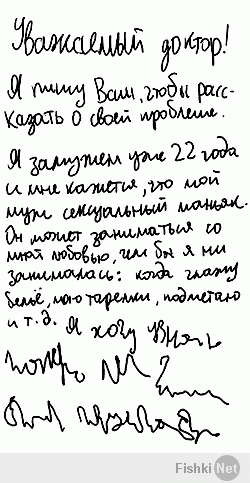 Уважаемый доктор!
Я пишу Вам, чтобы рас-
казать о своей проблеме.
Я замужем уже 22 года
и мне кажется, что мой
муж сексуальный маньяк.
Он может заниматься со
мной любовью, чем бы я ни
занималась: когда глажу
бельё, мою тарелки, подметаю
и т.д. Я хочу узнать
Fishki.Net